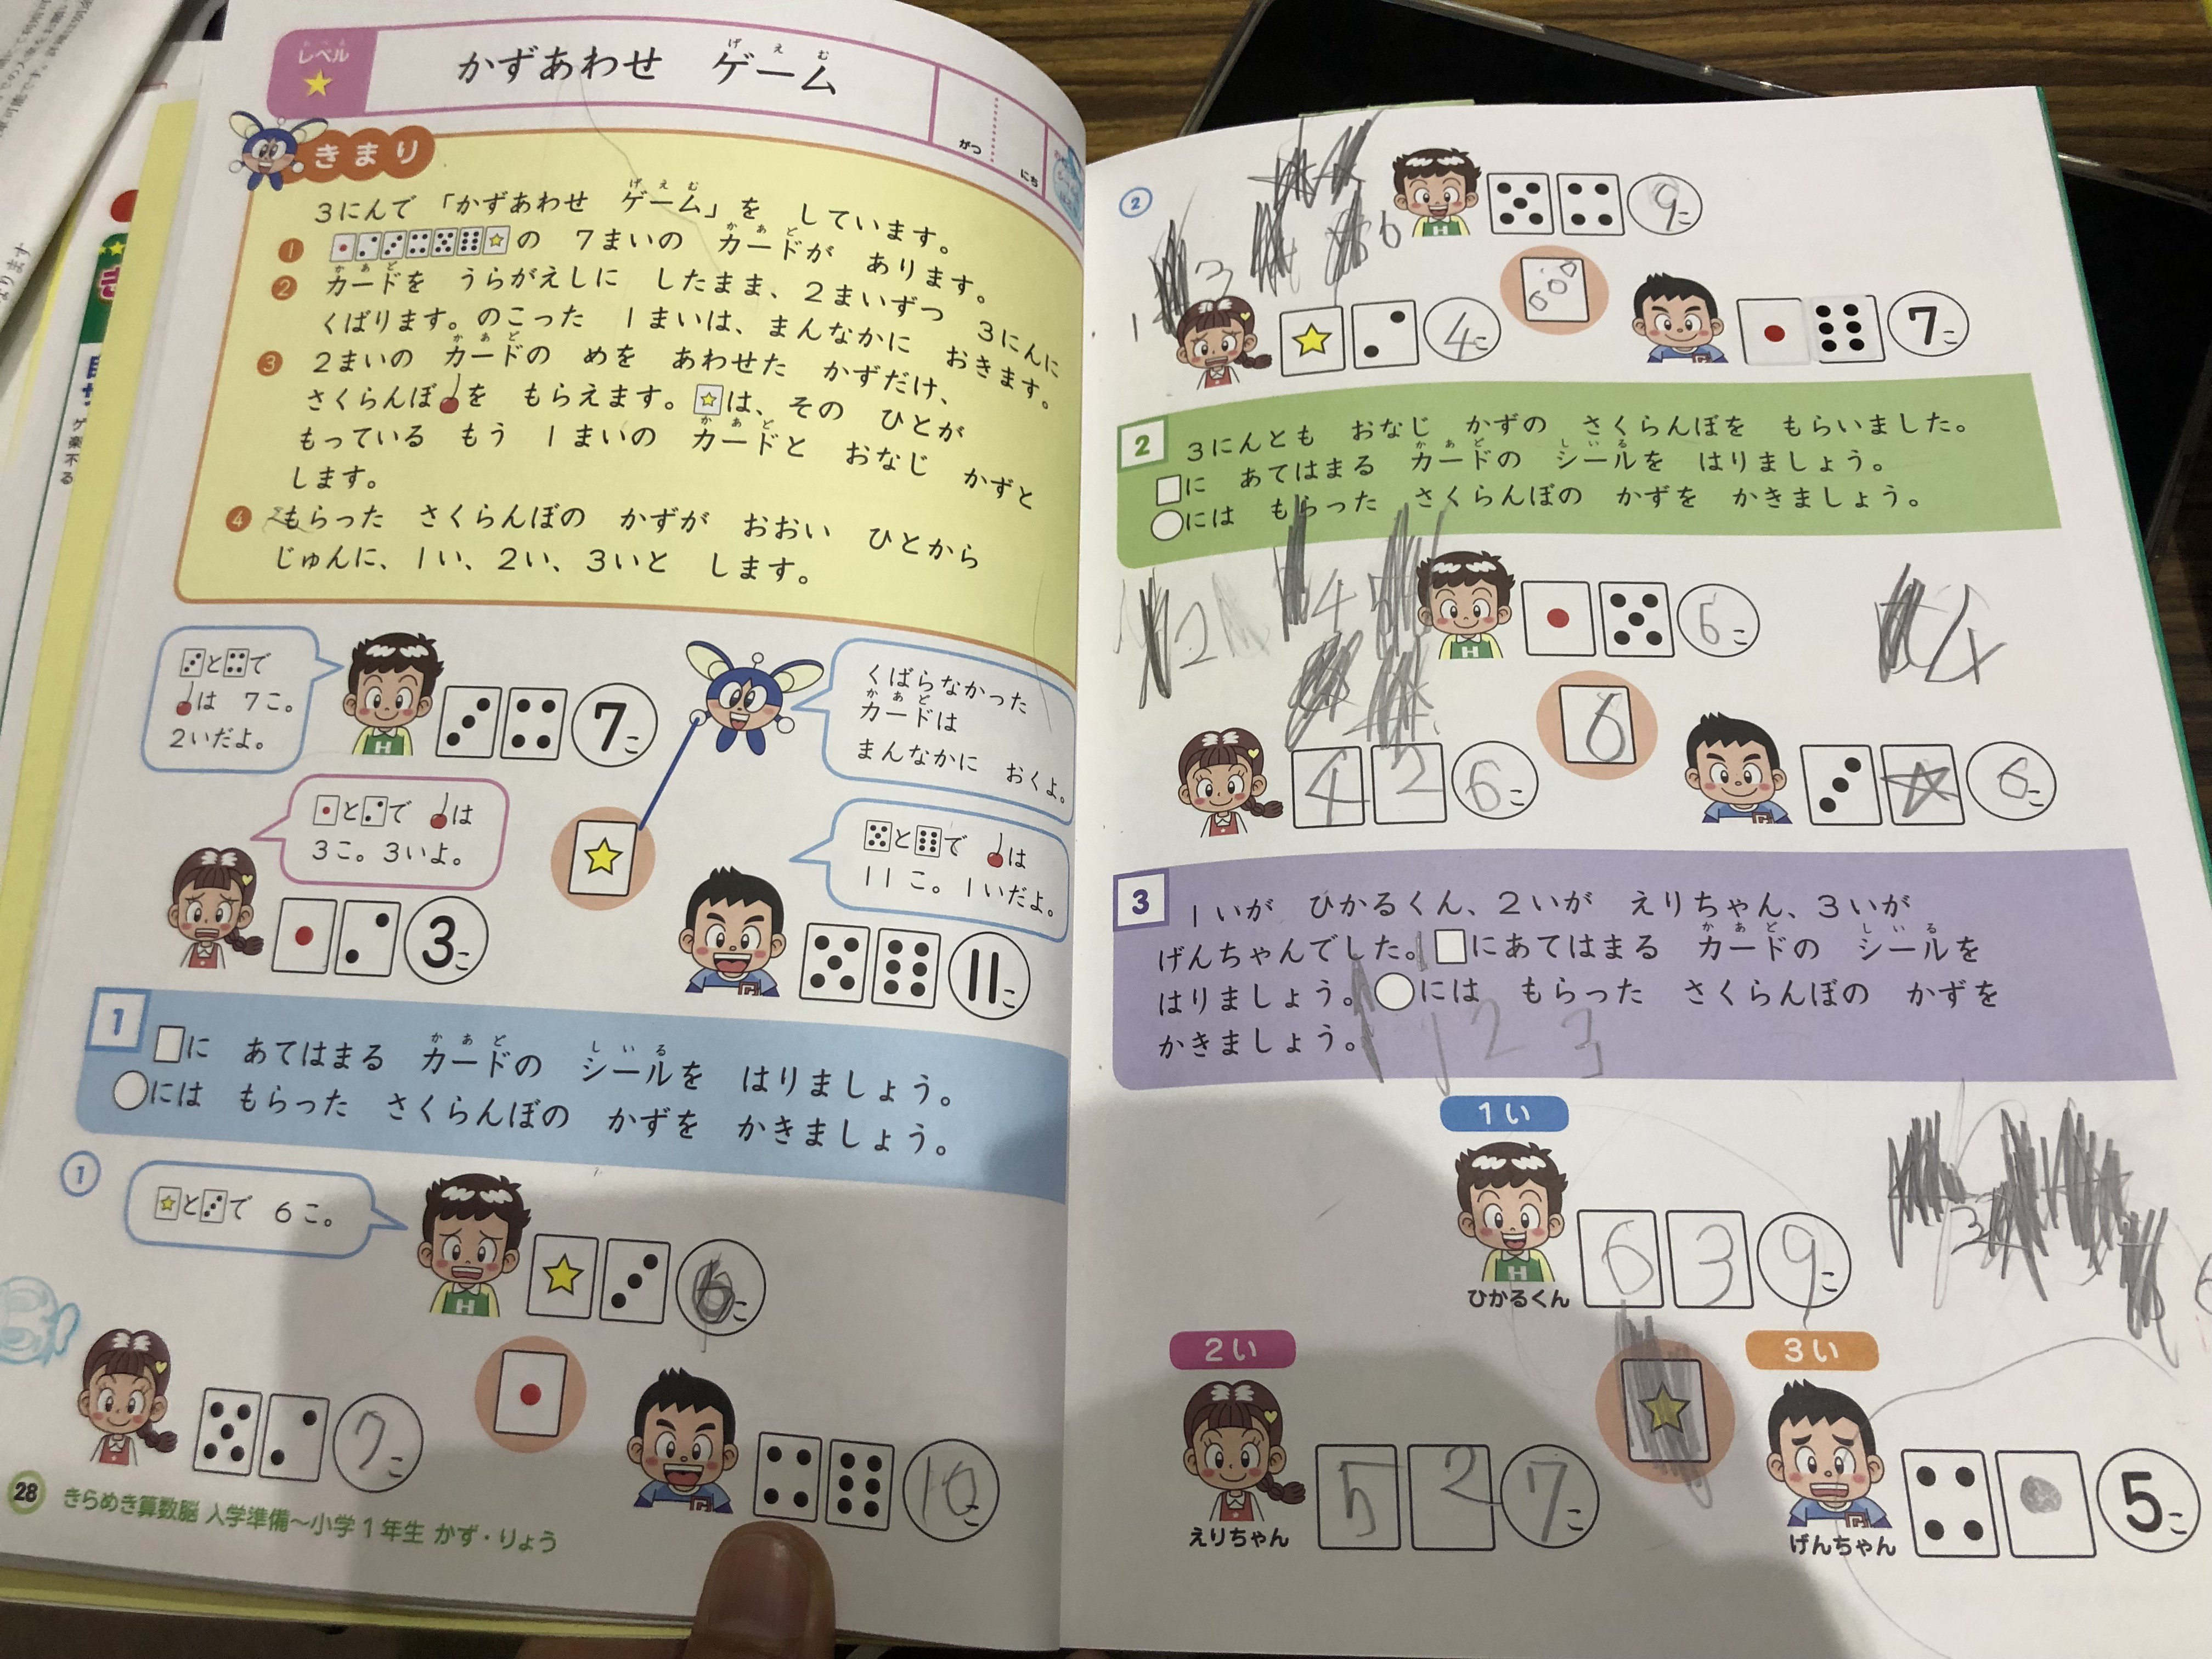 レベル
かずあわせ ゲーム
げえむ
がつ
にち
きまり
3にんで 「かずあわせ ゲーム」を しています。
げえむ
1 の 7まいの カードが あります。
かあど
2 カードを うらがえしに したまま、2まいずつ 3にんに
かあど
くばります。のこった 1まいは、まんなかに おきます。
3 2まいの カードの めを あわせた かずだけ、
かあど
さくらんぼを もらえます。は、その ひとが
もっている もう 1まいの カードと おなじ かずと
かあど
します。
4 もらった さくらんぼの かずが おおい ひとから
じゅんに、1い、2い、3いと します。
とで
は 7こ。
2いだよ。
H
7こ
くばらなかった
カードは
かあど
まんなかに おくよ。
とで は
3こ。3いよ。
3こ
とで は
11こ。1いだよ。
11こ
1 に あてはまる カードの シールを はりましょう。
かあど しいる
には もらった さくらんぼの かずを かきましょう。
1
とで 6こ。
H
6こ
7こ
10こ
28 きらめき算数脳 入学準備〜小学1年生 かず・りょう
2
H
9こ
4こ
7こ
2 3にんとも おなじ かずの さくらんぼを もらいました。
に あてはまる カードの シールを はりましょう。
かあど しいる
には もらった さくらんぼの かずを かきましょう。
H
6こ
6
4 2 6こ
6こ
3 1いが ひかるくん、2いが えりちゃん、3いが
げんちゃんでした。にあてはまる カードの シールを
かあど しいる
はりましょう。には もらった さくらんぼの かずを
かきましょう。
1 2 3
1い
H
ひかるくん
6 3 9こ
2い
えりちゃん
5 2 7こ
3い
げんちゃん
5こ